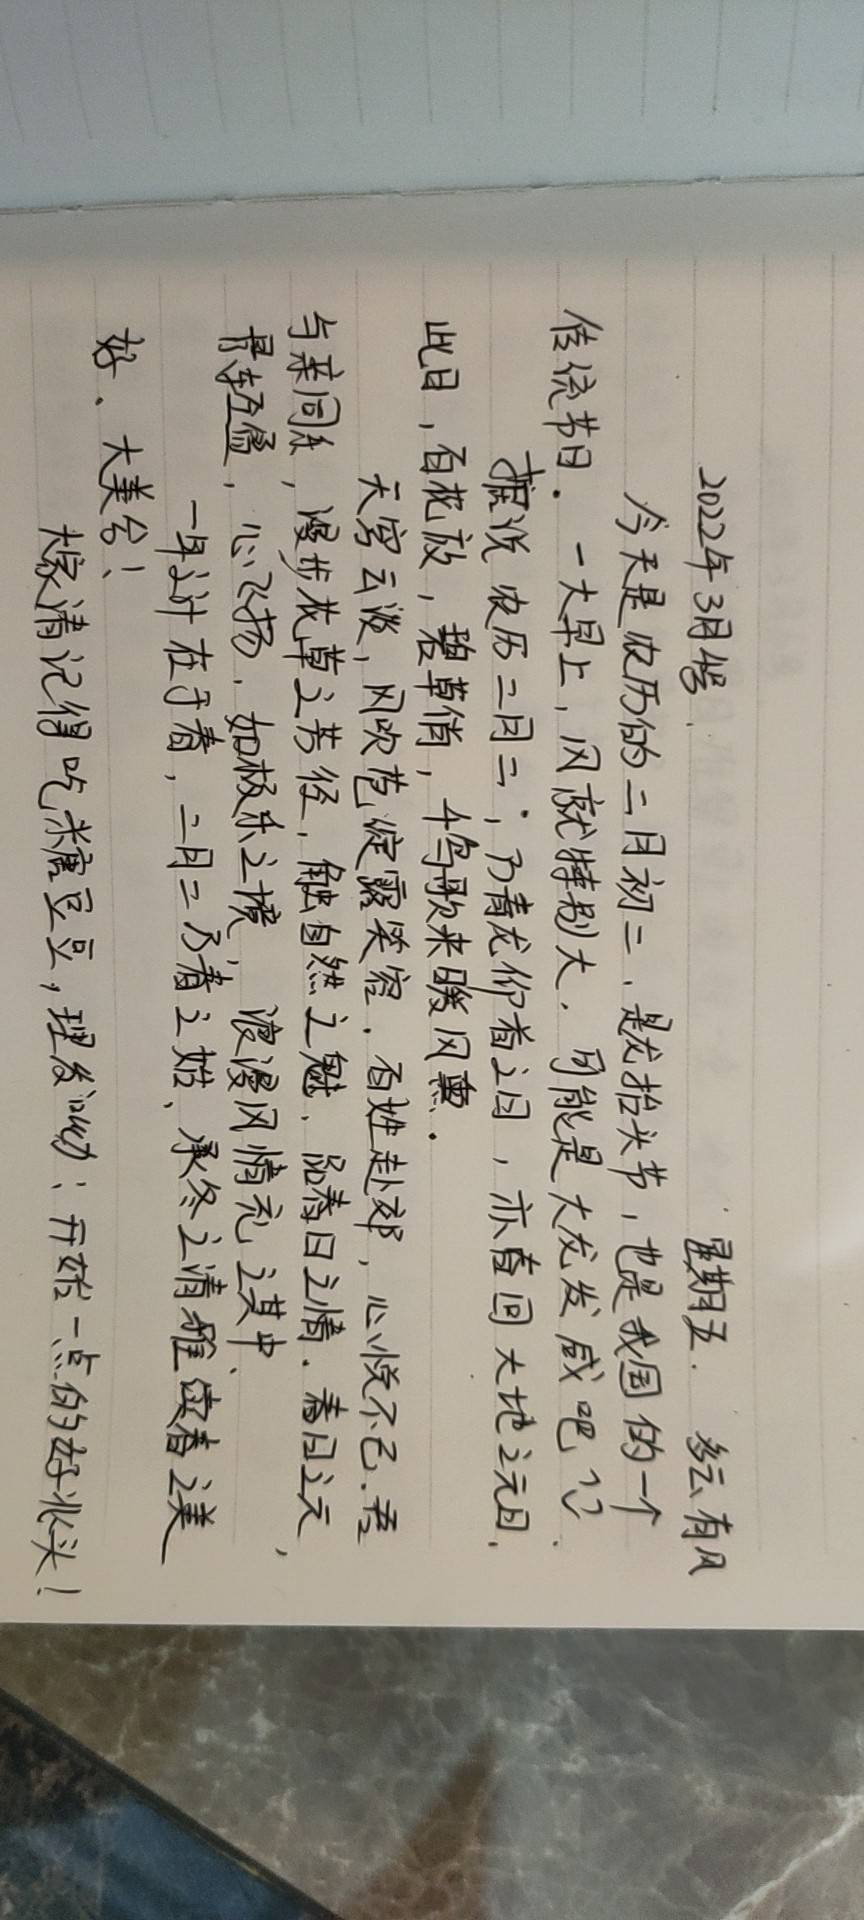 2022年3月4号. 星期五. 多云有风
今天是农历的二月初二、是龙抬头节，也是我国的一个
传统节日. 一大早上，风就特别大. 可能是大龙发威吧
据说农历二月二，乃青龙仰首之日，亦春回大地之元日.
此日，百花放，碧草俏，小鸟歌来暖风熏.
天穹云淡，风吹苞绽露笑容. 百姓赴郊，心悦不已.
与亲同乐，漫步花草之芳径，触自然之魅、品春日之情. 春日之元，
骨轻盈，心飞扬、如极乐之境 浪漫风情充之其中、
一年之计在于春，二月二乃春之始、承冬之清雅 续春之美
好、大美兮！
大家请记得吃糖豆豆，理发 ：开始一点的好兆头！